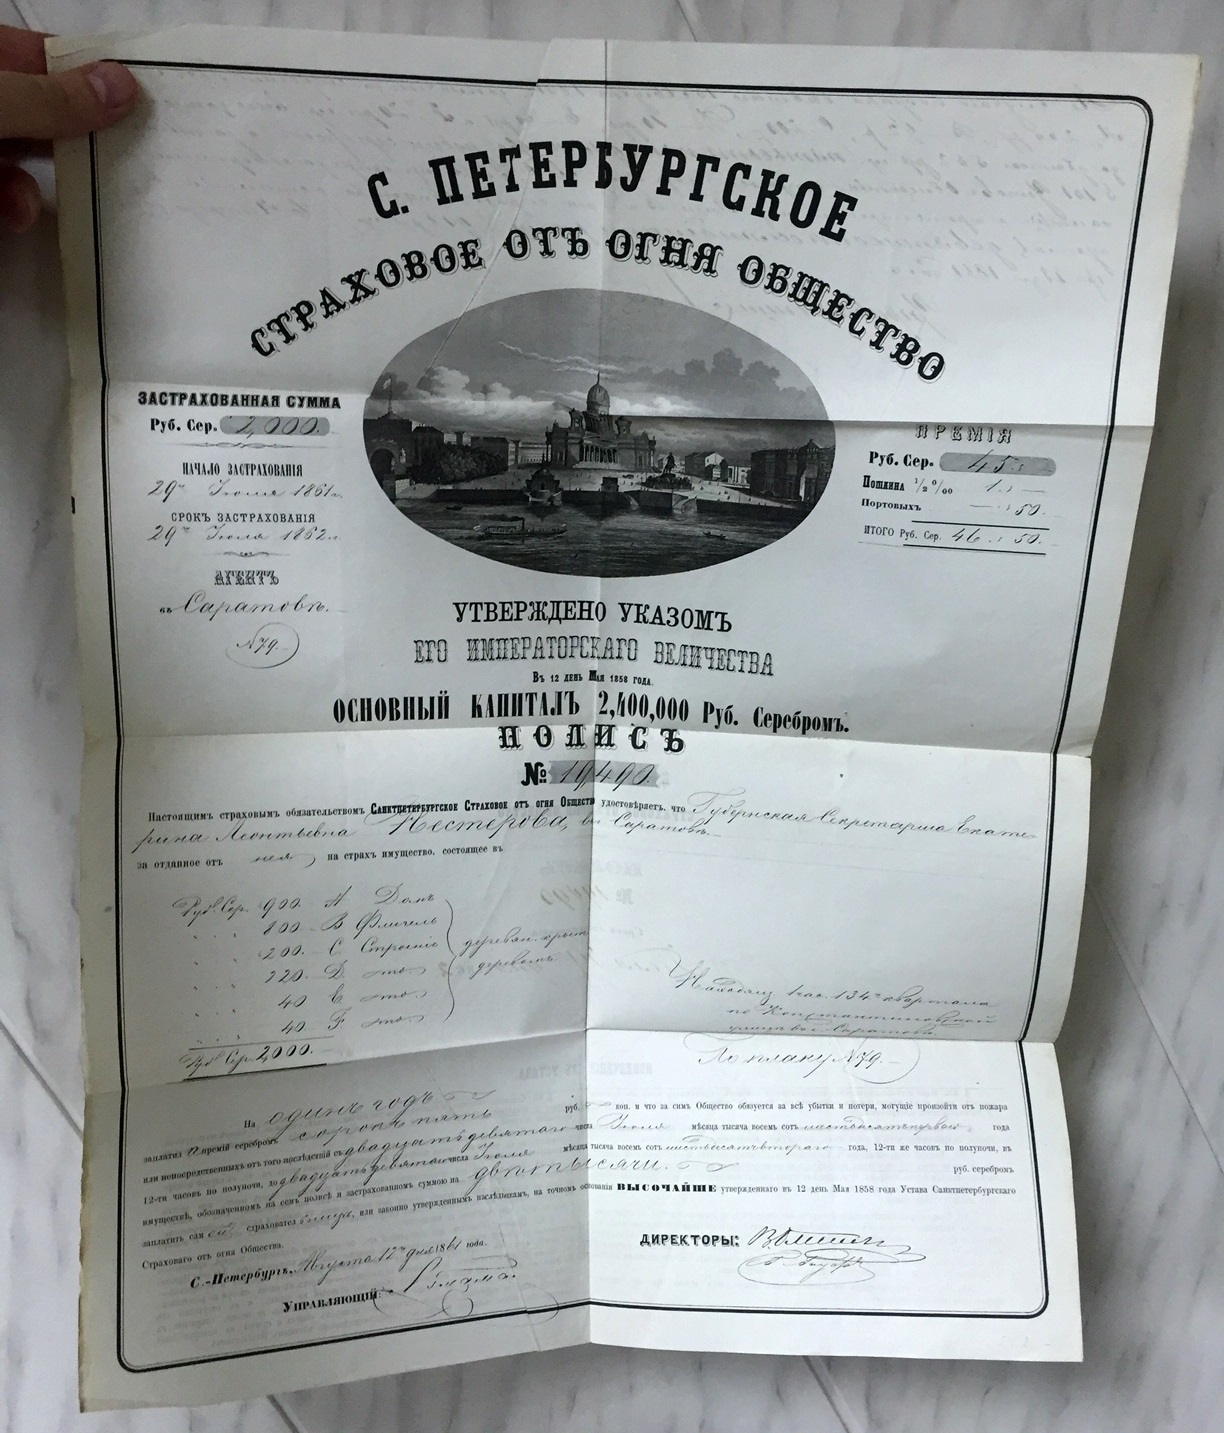 С. ПЕТЕРБУРГСКОЕ
СТРАХОВОЕ ОТЪ ОГНЯ ОБЩЕСТВО
ЗАСТРАХОВАННАЯ СУММА
Руб. Сер. 2,000.
НАЧАЛО ЗАСТРАХОВАНІЯ
29го Іюля 1861 г.
СРОКЪ ЗАСТРАХОВАНІЯ
29го Іюля 1862 г.
АГЕНТЪ
въ Саратовѣ.
N 79.
ПРЕМІЯ
Руб. Сер. 45
Пошлина ½ ‰ 1. —
Портовыхъ — 50.
ИТОГО Руб. Сер. 46. 50.
УТВЕРЖДЕНО УКАЗОМЪ
ЕГО ИМПЕРАТОРСКАГО ВЕЛИЧЕСТВА
Въ 12 день Мая 1858 года.
ОСНОВНЫЙ КАПИТАЛЪ 2,400,000 Руб. Серебромъ.
ПОЛИСЪ
№ 19490.
Настоящимъ страховымъ обязательствомъ Санктпетербургское Страховое отъ огня Общество удостовѣряетъ, что Губернская Секретарша Екате-
рина Леонтьевна Нестерова, въ Саратовѣ
за отданное отъ нея на страхъ имущество, состоящее въ
Руб. Сер. 900. А Домъ
800. В Флигель
200. С Строеніе
D это
40 E это
40. F это
деревян. крыт.
деревомъ
Руб. Сер. 2,000.
Находящ. 1 час. 134го квартала
по Константиновской
улицѣ въ Саратовѣ.
По плану N 79.
На одинъ годъ
заплатил а преміи серебромъ сорокъ пять руб. коп. и что за симъ Общество обязуется за всѣ убытки и потери, могущіе произойти отъ пожара
или непосредственныхъ отъ того послѣдствій съ двадцать девятаго числа Іюля мѣсяца тысяча восемь сотъ шестьдесятъ перваго года
12-ти часовъ по полуночи, до двадцать девятаго числа Іюля мѣсяца тысяча восемь сотъ шестьдесятъ втораго года, 12-ти же часовъ по полуночи, въ
имуществѣ, обозначенномъ на семъ полисѣ и застрахованномъ суммою на двѣ тысячи. руб. серебромъ
заплатить сам ой страховател ьницѣ, или законно утвержденнымъ наслѣдникамъ, на точномъ основаніи ВЫСОЧАЙШЕ утвержденнаго въ 12 день Мая 1858 года Устава Санктпетербургскаго
Страховаго отъ огня Общества.
С.-Петербургъ, Августа 12го дня 1861 года.
Управляющій:
ДИРЕКТОРЫ: